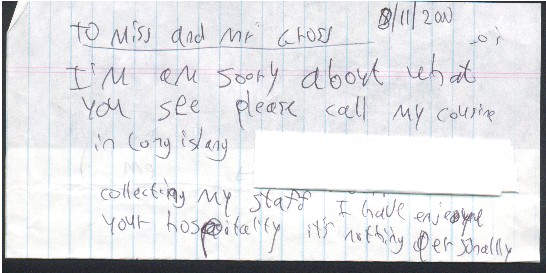 TO Miss and Mr Gross 8/11/200
I'M am soory about what
you see please call My cousine
in Long islang
collecting My staff I have
your hospitality it's nothing personally